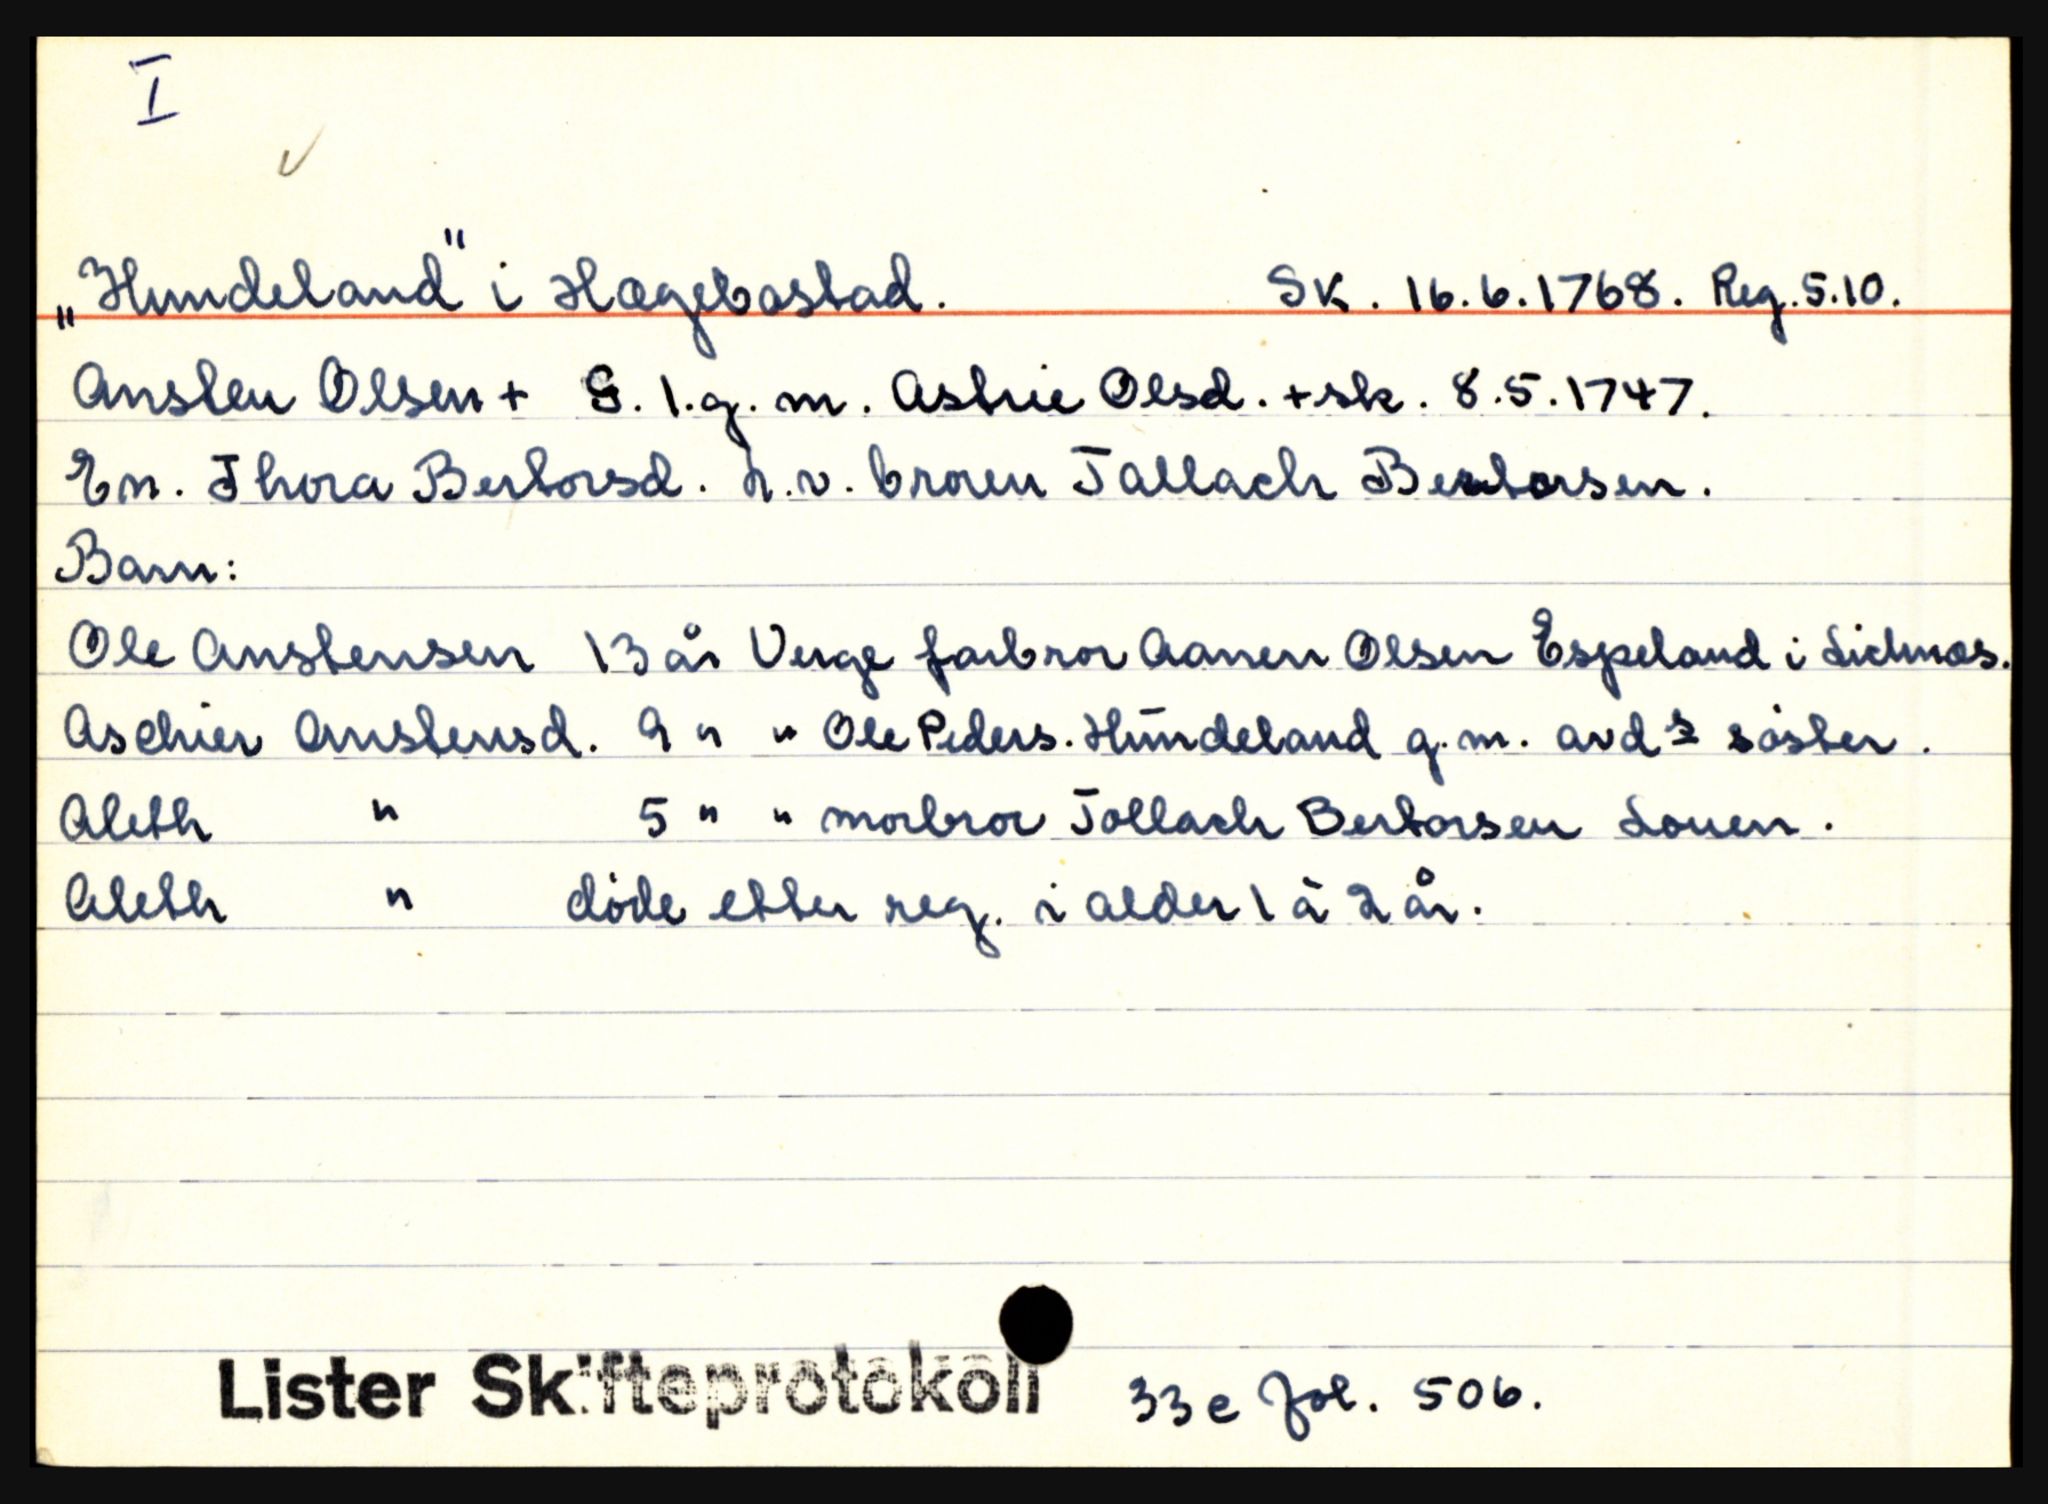 I
✓
„Hundeland" i Hægebostad. SK. 16.6.1768. Reg. 5.10.
Ansten Olsen + G. 1.g. m. Astrie Olsd. + sk. 8.5.1747.
En. Thora Bertorsd. L.v. broren Tallach Bertorsen.
Barn:
Ole Anstensen 13 år Verge farbror Aanen Olsen Espeland i Lidnæs.
Aschier Anstensd. 9 " " Ole Peders. Hundeland g.m. avds søster.
Aleth " 5 " " morbror Tollach Bertorsen Louen.
Aleth " døde etter reg. i alder 1 à 2 år.
Lister Skifteprotokoll 33e fol. 506.